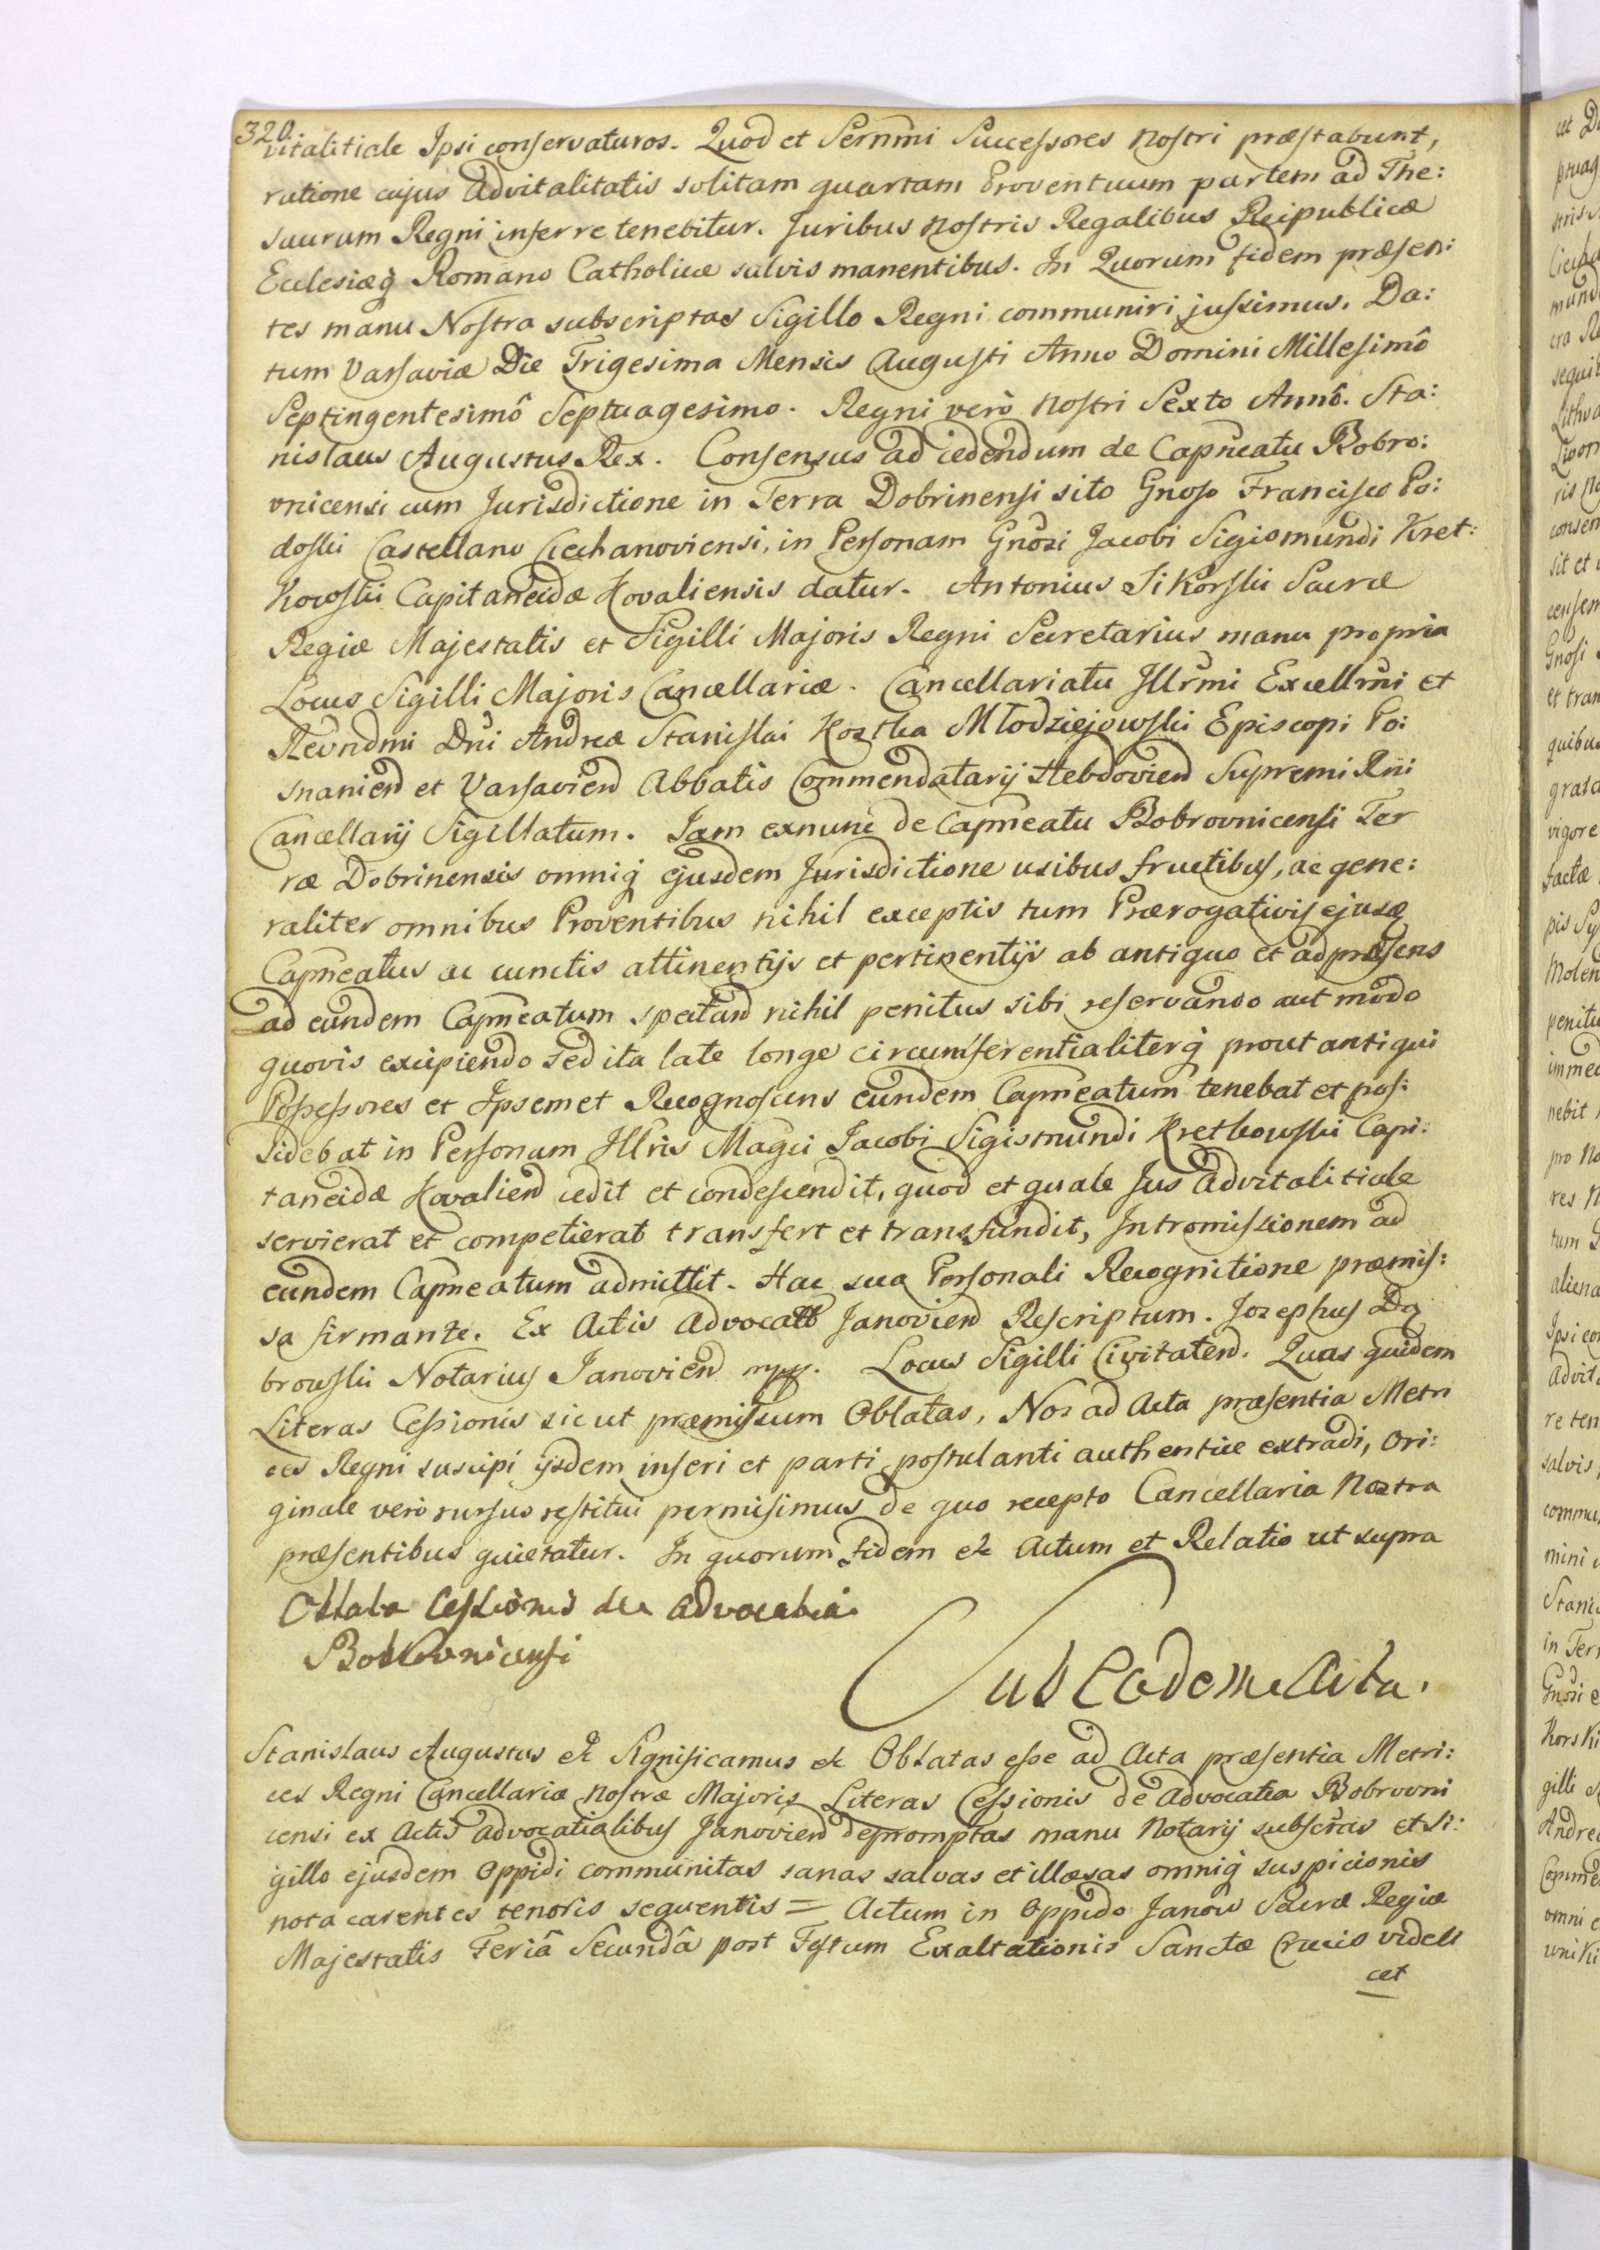 320.
vitalitiale Ipsi conservaturos. Quod et Sernmi Successores Nostri præstabunt,
ratione cujus advitalitatis solitam quartam Proventuum partem ad The:
saurum Regni inferre tenebitur. Juribus Nostris Regalibus Reipublicæ
Ecclesiæq Romano Catholicæ salvis manentibus. In Quorum fidem præsen:
tes manu Nostra subscriptas Sigillo Regni communiri jussimus. Da:
tum Varsaviæ Die Trigesima Mensis Augusti Anno Domini Millesimô
Septingentesimô Septuagesimo. Regni verò Nostri Sexto Annô. Sta:
nislaus Augustus Rex. Consensus ad cedendum de Capneatu Bobro:
vnicensi cum Jurisdictione in Terra Dobrinensi sito Gnoso Francisco Po:
doski Castellano Ciechanoviensi, in Personam Gnosi Jacobi Sigismundi Kret:
kowski Capitaneidæ Kovaliensis datur. Antonius Sikorski Sacræ
Regiæ Majestatis et Sigilli Majoris Regni Secretarius manu propria
Locus Sigilli Majoris Cancellariæ. Cancellariatu Illrmi Excellmi et
Reundmi Dni Andreæ Stanislai Kostka Młodziejowski Episcopi Po:
snanien et Varsavien Abbatis Commendatarij Hebdovien Supremi Rni
Cancellarij Sigillatum. Jam exnunc de Capneatu Bobrovnicensi Ter
ræ Dobrinensis omniq ejusdem Jurisdictione usibus fructibus, ac gene:
raliter omnibus Proventibus nihil exceptis tum Prærogativis ejusq
Capneatus ac cunctis attinentijs et pertinentijs ab antiquo et ad præsens
ad eundem Capneatum spectan nihil penitus sibi reservando aut modo
quovis excipiendo sed ita late longe circumferentialiterq prout antiqui
Possessores et Ipsemet Recognoscens eundem Capneatum tenebat et pos:
sidebat in Personam Illris Magci Jacobi Sigismundi Kretkowski Capi:
taneidæ Kovalien cedit et condescendit, quod et quale Jus advitalitiale
servierat et competierat transfert et transfundit, Intromissionem ad
eundem Capneatum admittit. Hac sua Personali Recognitione præmis:
sa firmante. Ex Actis Advocatt Janovien Rescriptum. Josephus Dą
browski Notarius Janovien mpp. Locus Sigilli Civitaten. Quas quidem
Literas Cessionis sicut præmissum Oblatas, Nos ad Acta præsentia Metri
ces Regni suscipi ijsdem inseri et parti postulanti authentice extradi, Ori:
ginale verò rursus restitui permisimus de quo recepto Cancellaria Nostra
præsentibus quietatur. In quorum fidem &c Actum et Relatio ut supra
Oblata Cessionis de Advocatia
Bobrovnicensi
Sub Eadem Acta.
Stanislaus Augustus &c Significamus &c Oblatas esse ad Acta præsentia Metri:
ces Regni Cancellariæ Nostræ Majoris Literas Cessionis de Advocatia Bobrovni
censi ex Actis Advocatialibus Janovien depromptas manu Notarij subscras et Si:
gillo ejusdem Oppidi communitas sanas salvas et illæsas omniq suspicionis
nota carentes tenoris sequentis = Actum in Oppido Janow Sacræ Regiæ
Majestatis Feriâ Secundâ post Festum Exaltationis Sanctæ Crucis videli
cet